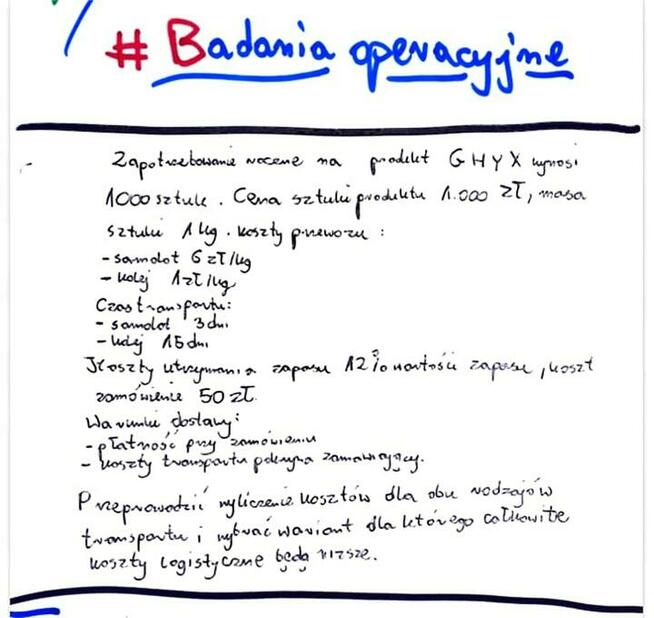 # Badania operacyjne
Zapotrzebowanie roczne na produkt GHYX wynosi
1000 sztuk. Cena sztuki produktu 1.000 zł, masa
sztuki 1 kg. koszty przewozu:
- samolot 6 zł/kg
- kolej 1 zł/kg
Czas transportu:
- samolot 3 dni
- kolej 15 dni
Koszty utrzymania zapasu 12% wartości zapasu, koszt
zamówienie 50 zł.
Warunki dostawy:
- płatność przy zamówieniu
- koszty transportu pokrywa zamawiający.
Przeprowadzić wyliczenie kosztów dla obu rodzajów
transportu i wybrać wariant dla którego całkowite
koszty logistyczne będą niższe.